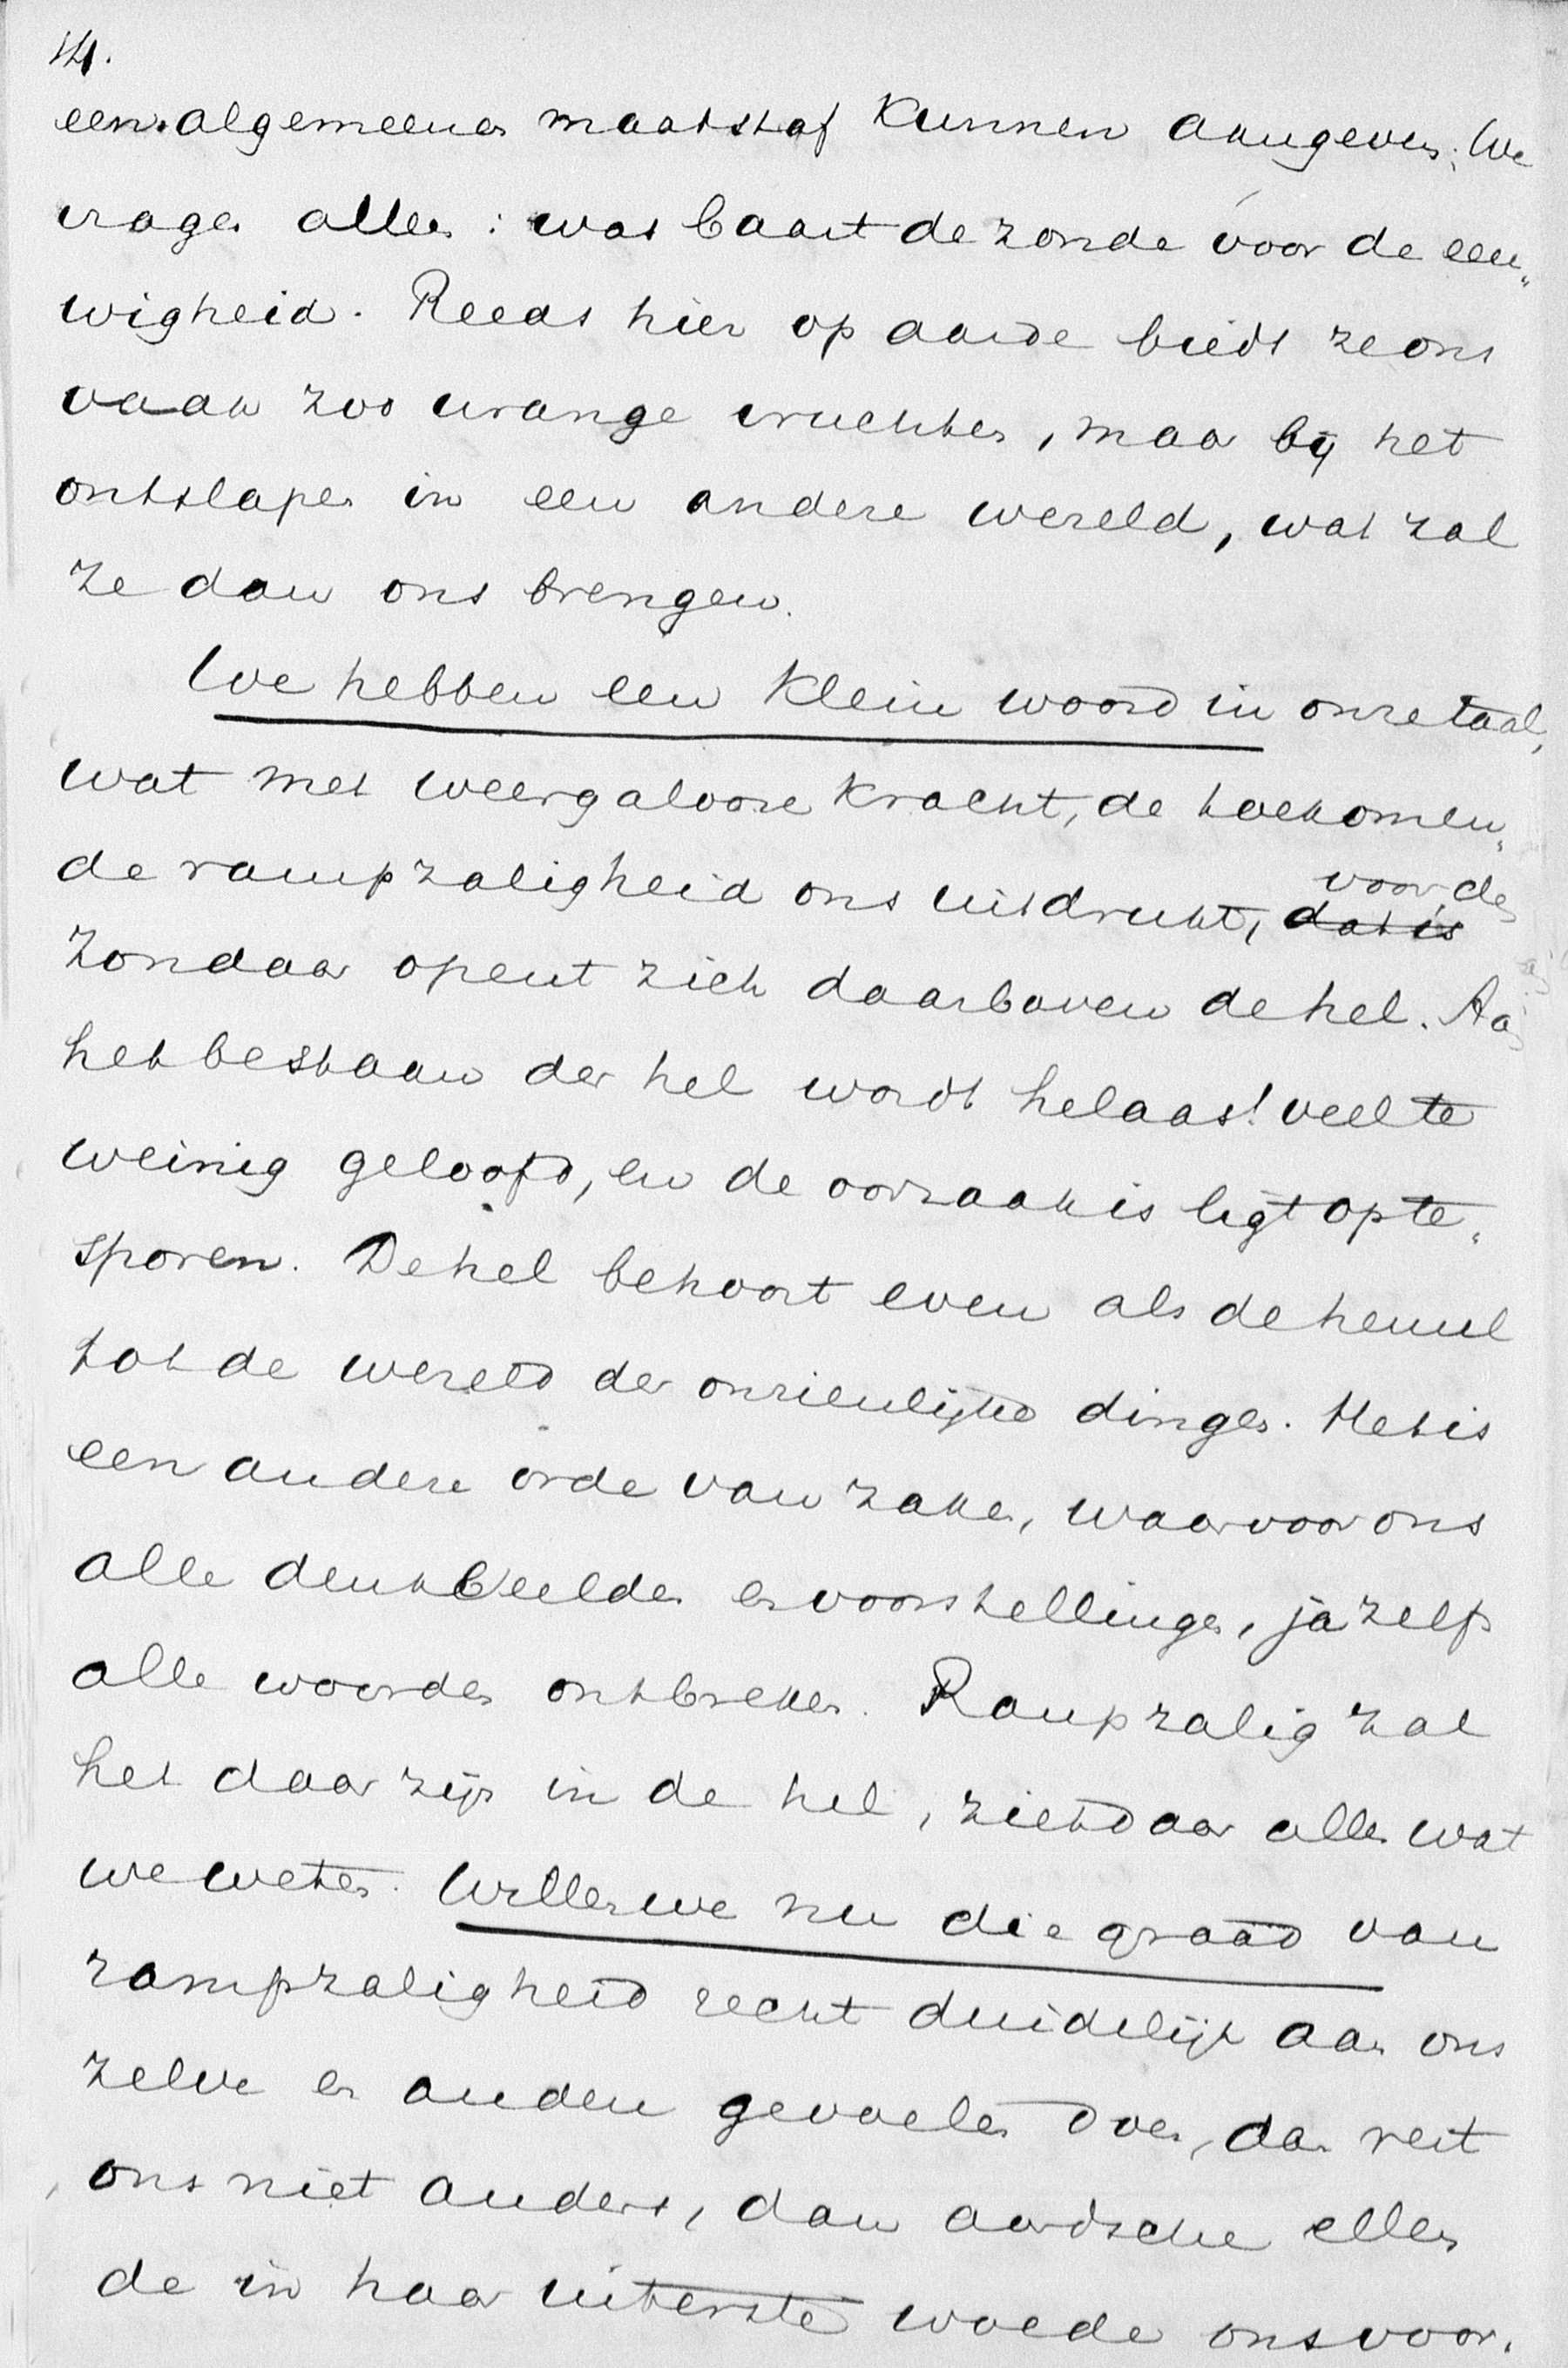 14.
een algemeenen maatstaf kunnen aangeven. We
vragen allen: wat baart de zonde voor de eeu„
wigheid. Reeds hier op aarde biedt ze ons
vaak zoo wrange vruchten, maar bij het
ontslapen in een andere wereld, wat zal
ze dan ons brengen.
We hebben een klein woord in onze taal,
wat met weergaloze kracht, de toekomen„
de rampzaligheid ons uitdrukt, dat is voor den
zondaar opent zich daarboven de hel. Aan
het bestaan der hel wordt helaas! veel te
weinig geloofd, en de oorzaak is ligt op te„
sporen. De hel behoort even als de hemel
tot de wereld der onzienlijke dingen. Het is
een andere orde van zaken, waarvoor ons
alle denkbeelden en voorstellingen, ja zelfs
alle woorden ontbreken. Rampzalig zal
het daar zijn in de hel, ziet daar alles wat
we weten. Willen we nu die graad van
rampzaligheid recht duidelijk aan ons
zelve en anderen gevoelen doen, dan rest
ons niet anders, dan aardsche ellen
de in haar uiterste woede ons voor„